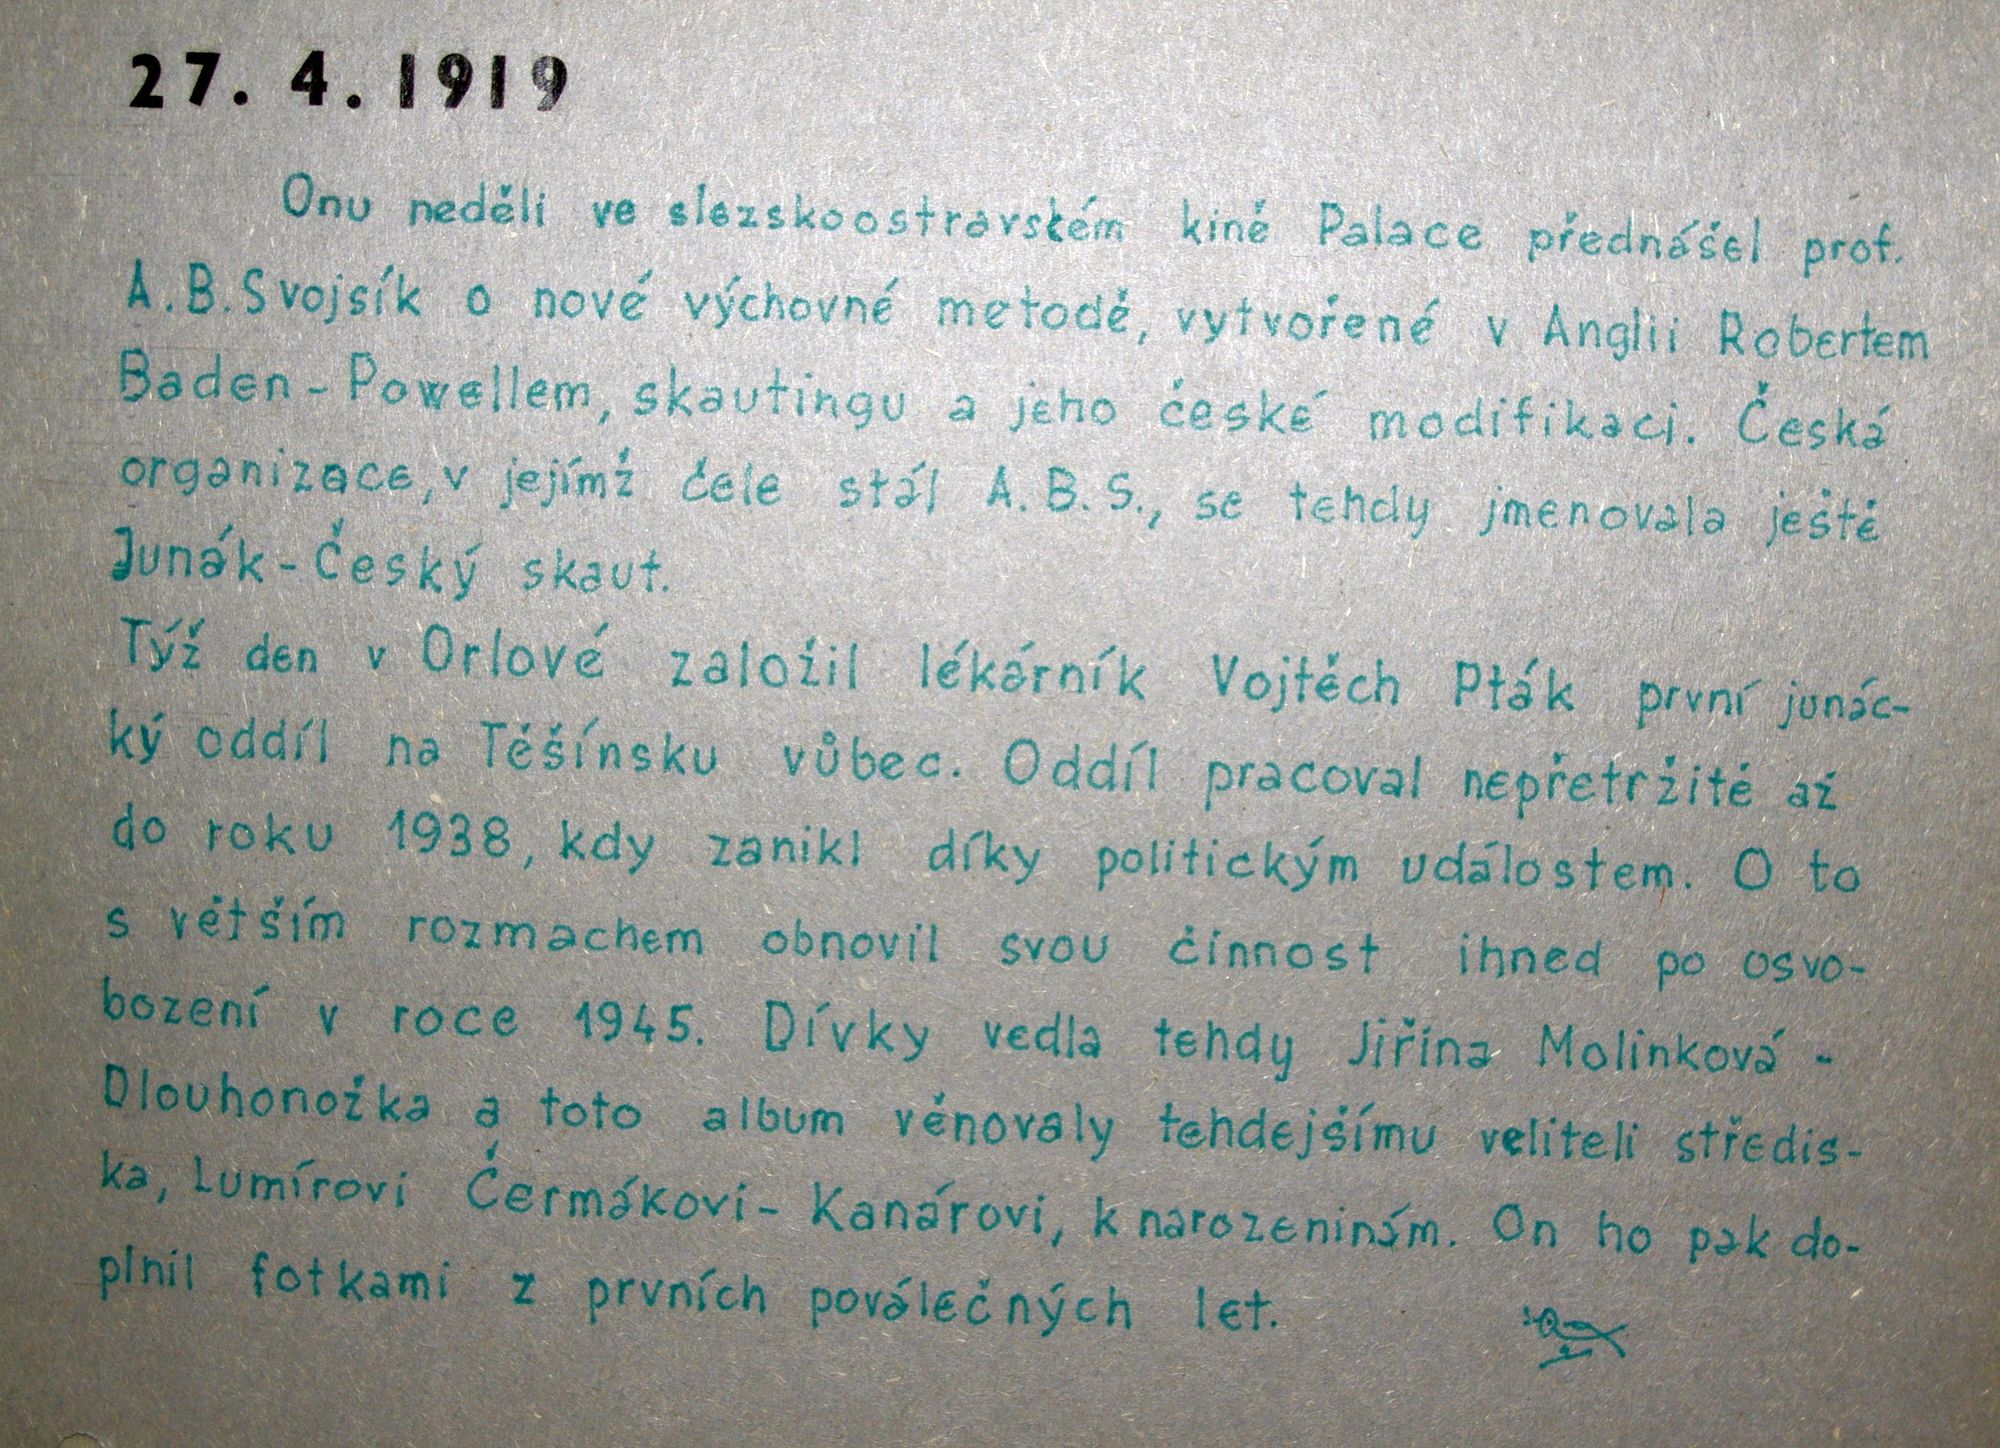 27. 4. 1919
Onu neděli ve slezskoostravském kině Palace přednášel prof.
A. B. Svojsík o nové výchovné metodě, vytvořené v Anglii Robertem
Baden - Powellem, skautingu a jeho české modifikaci. Česká
organizace, v jejímž čele stál A. B. S., se tehdy jmenovala ještě
Junák - Český skaut.
Týž den v Orlové založil lékárník Vojtěch Pták první junác-
ký oddíl na Těšínsku vůbec. Oddíl pracoval nepřetržitě až
do roku 1938, kdy zanikl díky politickým událostem. O to
s větším rozmachem obnovil svou činnost ihned po osvo-
bození v roce 1945. Dívky vedla tehdy Jiřina Molinková -
Dlouhonožka a toto album věnovaly tehdejšímu veliteli středis-
ka, Lumírovi Čermákovi - Kanárovi, k narozeninám. On ho pak do-
plnil fotkami z prvních poválečných let.